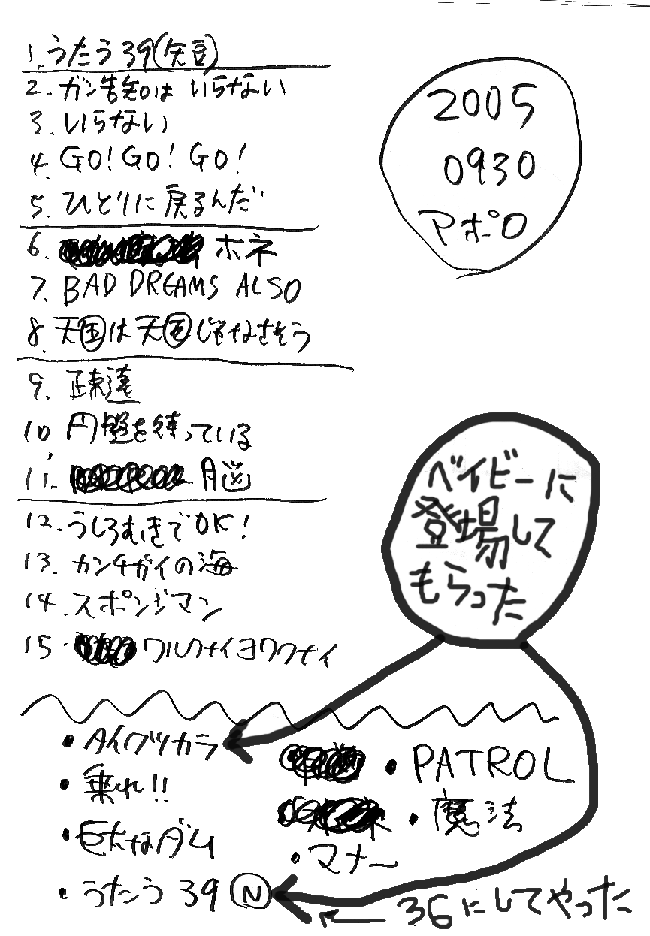 1. うたう39(矢豆)
2. ガン告知は いらない
3. いらない
4. GO! GO! GO!
5. ひとりに 戻るんだ
6. ホネ
7. BAD DREAMS ALSO
8. 天国は 天国じゃなさそう
9. 疎遠
10. 円盤を待っている
11. 脳
12. うしろむきでOK!
13. カンチガイの海
14. スポンジマン
15. ワルクナイヨワクナイ
2005
0930
アポロ
ベイビーに
登場して
もらった
・タイクツカラ
・乗れ!!
・巨大なダム
・うたう 39 Ⓝ
・PATROL
・魔法
・マナー
← 36にしてやった